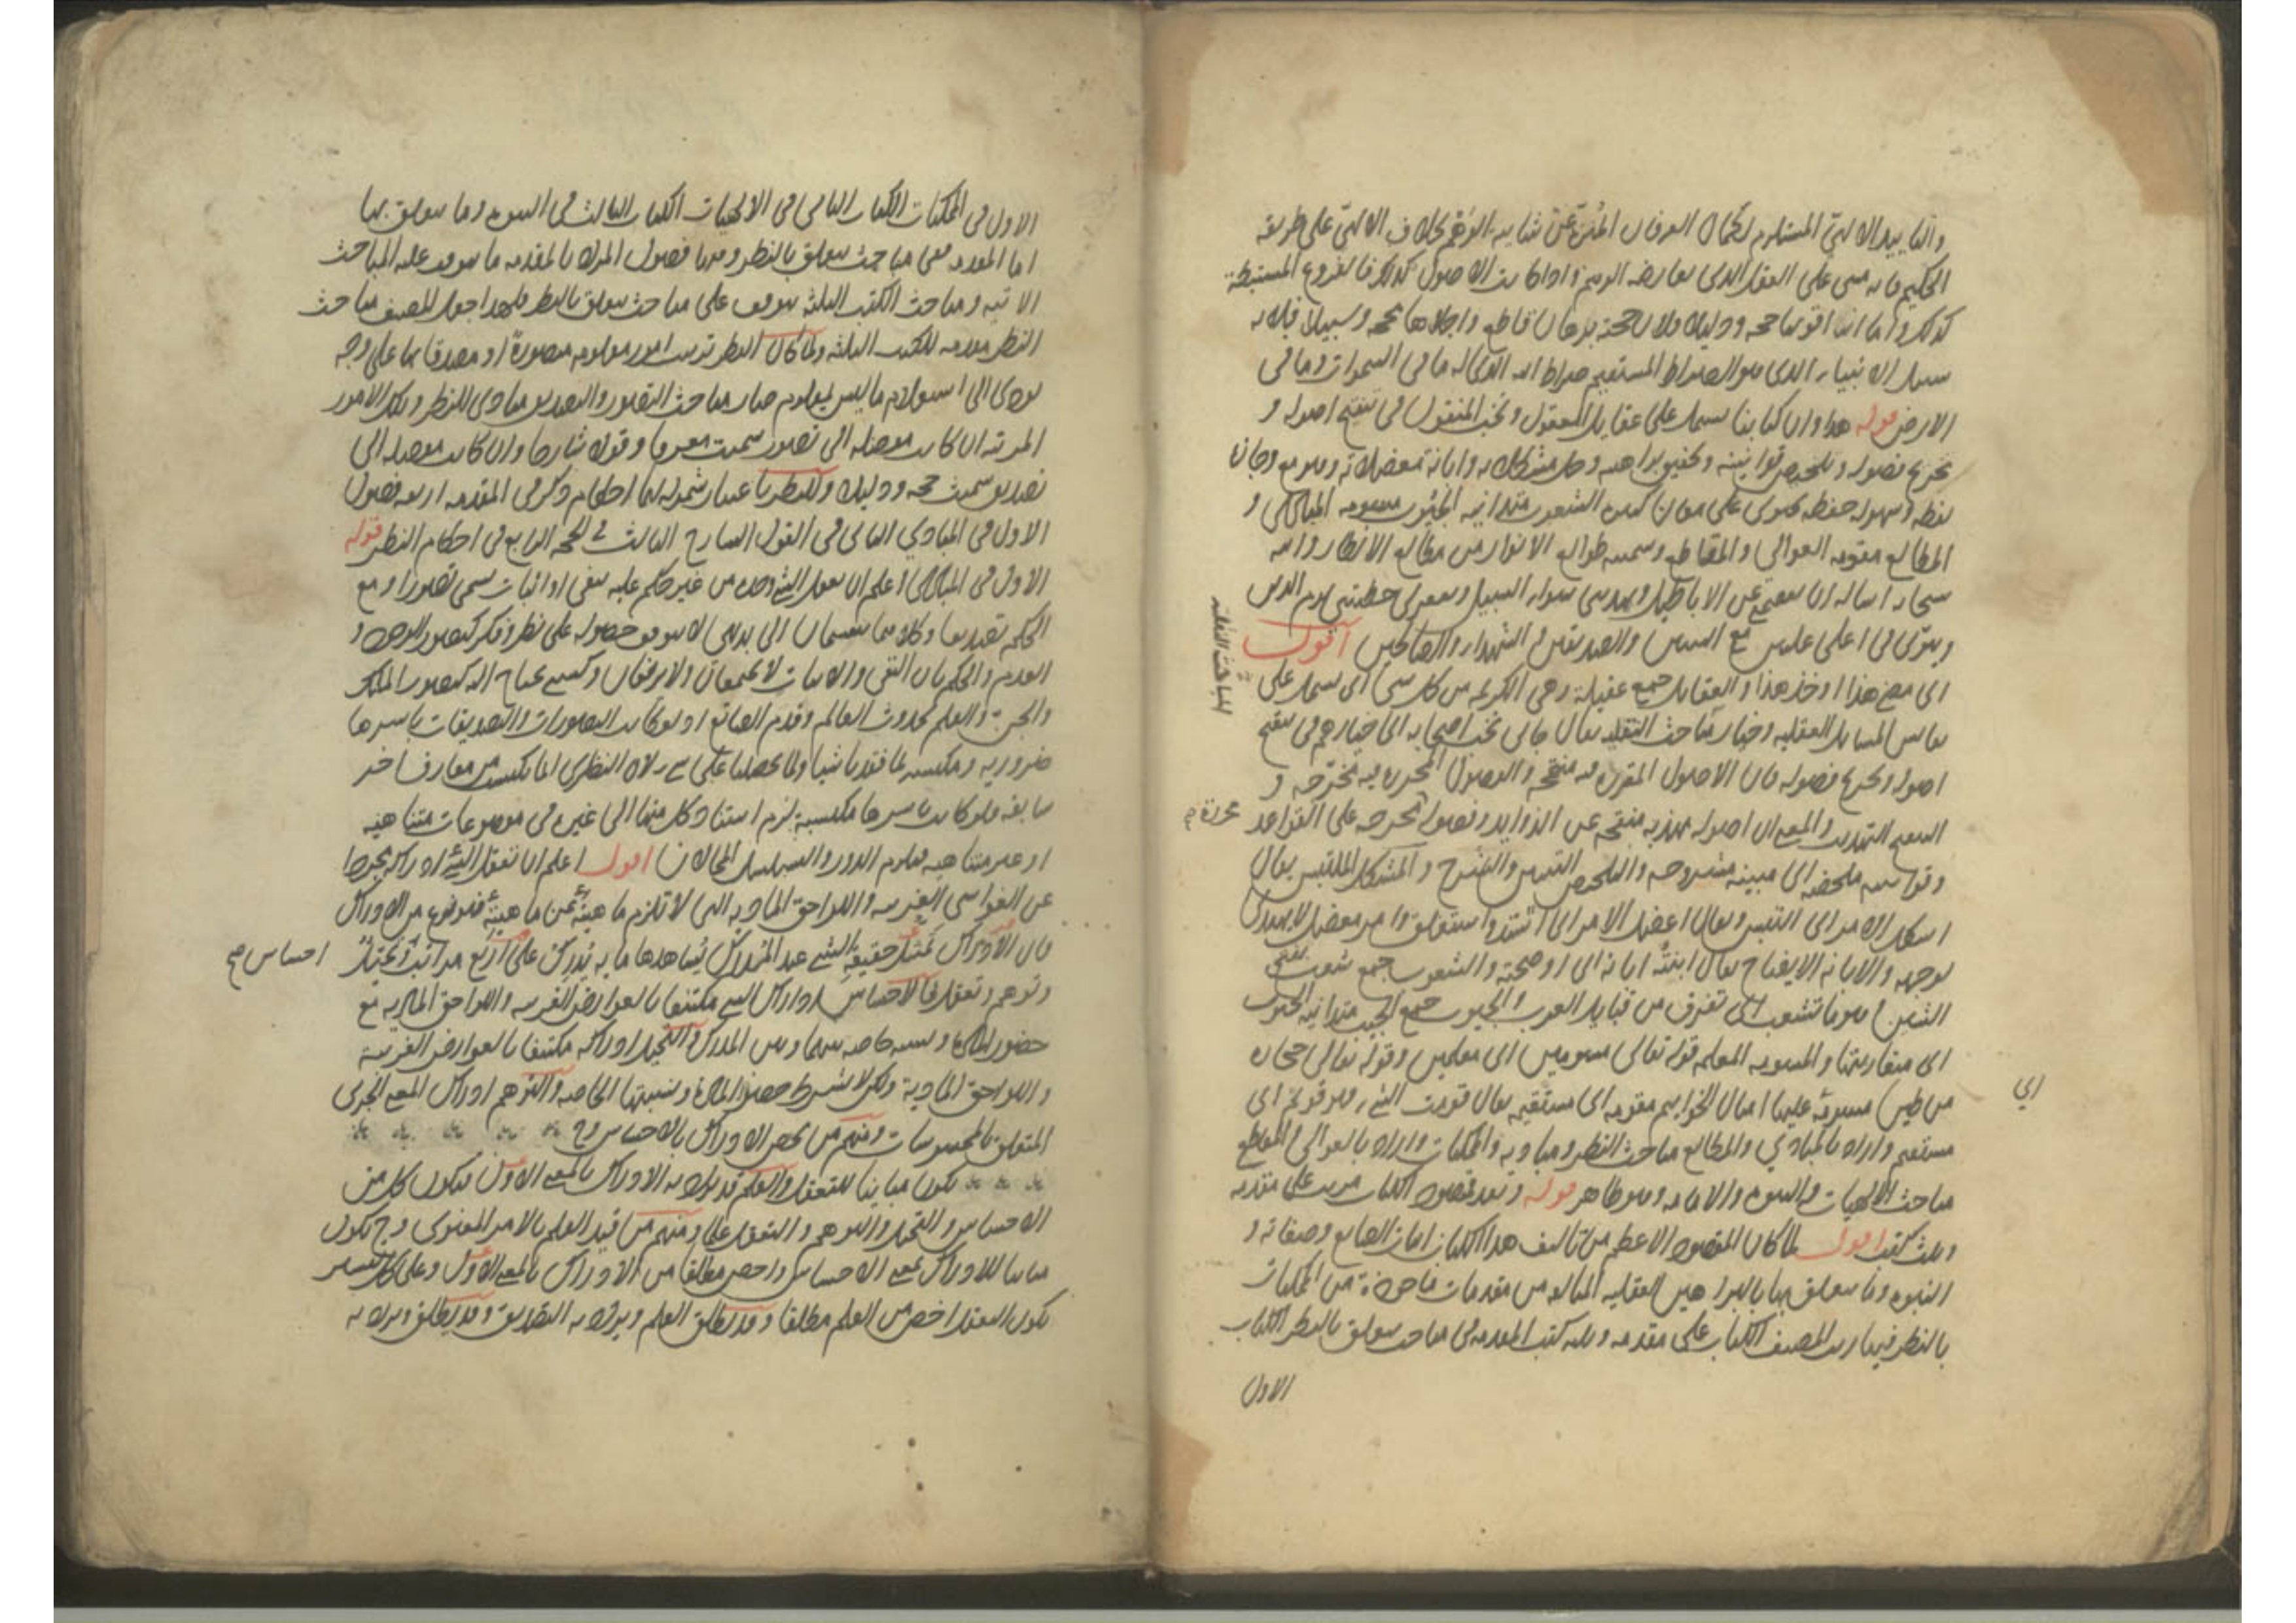 والتأييد الالهي المستلزم لكمال العرفان المنزه عن شايبه الوهم بخلاف الالهي على طريقه
الحكيم فانه مبنى على العقل الذى يعارضه الوهم واذا كانت الاصول كذلك فالفروع المستنبطة
كذلك واما انه اقومها حجه ودليلا فلان حجته برهان قاطع واجلاها محجه وسبيلا فلانه
سبيل الانبياء الذى هو الصراط المستقيم صراط الله الذى له ما فى السموات وما فى
الارض قوله هذا وان كتابنا يشتمل على عقايل المعقول ونخب المنقول فى تنقيح اصوله و
تخريج فصوله وتلخيص قوانينه وتحقيق براهينه وحل مشكلاته وابانة معضلاته وهو مع وجازة
لفظه وسهوله حفظه يحتوى على معان كثيره الشعوب متدانيه الجنوب مسومه المبادى و
المطالع مقومه العوالى والمقاطع وسميته طوالع الانوار من مطالع الانظار والله
سبحانه اساله ان يعصمنى عن الاباطيل ويهدينى سواء السبيل ويغفر لى خطيئتى يوم الدين
ويبوئنى فى اعلى عليين مع النبيين والصديقين والشهداء والصالحين اقول
اى مضى هذا او خذ هذا والعقايل جمع عقيلة وهى الكريمه من كل شى اى يشتمل على
نفايس المسايل العقليه وخيار المباحث النقليه يقال جانى نخب اصحابه اى خيارهم فى تنقيح
المباحث النقلية
اصوله وتخريج فصوله فان الاصول المقرره فيه منقحه والفصول المحرره فيه مخرجه و
التنقيح التهذيب والمعنى ان اصوله مهذبه منقحه عن الزوايد وفصوله مخرجه على القواعد
محررة صح
وقوانينه ملخصه اى مبينه مشروحه والتلخيص التبيين والشرح والمشكل الملتبس يقال
اشكل الامر اى التبس ويقال اعضل الامر اى اشتد واستغلق وامر معضل لا يهتدى
لوجهه والابانه الايضاح يقال ابنته ابانه اى اوضحته والشعوب جمع شعب بفتح
الشين وهو ما تشعب اى تفرق من قبايل العرب والجنوب جمع الجنب متدانيه الجنوب
اى متقاربتها والمسومه المعلمه قوله تعالى مسومين اى معلمين وقوله تعالى حجارة
من طين مسومة عليها امثال الخواتيم مقومه اى مستقيمه يقال قومت الشيء فهو قويم اى
اي
مستقيم واراد بالمبادي والمطالع مباحث النظر ومباديه والممكنات واراد بالعوالى والمقاطع
مباحث الالهيات والنبوه والامامه وهو ظاهر قوله وبعد فمقصود الكتاب مرتب على مقدمه
وثلث كتب اقول لما كان المقصود الاعظم من تاليف هذا الكتاب اثبات الصانع وصفاته و
النبوه وما يتعلق بها بالبراهين العقليه المتالفه من مقدمات ماخوذة من الممكنات
بالنظر فيها رتب المصنف الكتاب على مقدمه وثلثه كتب المقدمه فى مباحث يتعلق بالنظر الكتاب
الاول
الاول فى الممكنات الكتاب الثانى فى الالهيات الكتاب الثالث فى النبوه وما يتعلق بها
اما المقدمه ففى مباحث يتعلق بالنظر وفيها فصول المراد بالمقدمه ما يتوقف عليه المباحث
الاتيه ومباحث الكتب الثلثه يتوقف على مباحث يتعلق بالنظر فلهذا جعل المصنف مباحث
النظر مقدمه للكتب الثلثه ولما كان النظر ترتيب امور معلومه متصورة او مصدق بها على وجه
يودى الى استعلام ما ليس بمعلوم صار مباحث التصور والتصديق مبادى للنظر وتلك الامور
المرتبه ان كانت موصله الى تصور سميت معرفا وقولا شارحا وان كانت موصله الى
تصديق سميت حجه ودليلا وللنظر باعتبار شموله لهما احكام ذكر فى المقدمه اربعه فصول
الاول فى المبادي الثانى فى القول الشارح الثالث فى الحجه الرابع فى احكام النظر قوله
الاول فى المبادى اعلم ان تعقل الشئ وحده من غير حكم عليه بنفى او اثبات يسمى تصورا ومع
الحكم تصديقا وكلاهما ينقسمان الى بديهى لا يتوقف حصوله على نظر وفكر كتصور الوجود و
العدم والحكم بان النفى والاثبات لا يجتمعان ولا يرتفعان وكسبى يحتاج اليه كتصور الملك
والجن والعلم بحدوث العالم وقدم الصانع اذ لو كانت التصورات والتصديقات باسرها
ضروريه او مكتسبه لما فقدنا شيا ولما تحصلنا على شى لان النظرى انما يكتسب من معارف اخر
سابقه فلو كانت باسرها مكتسبة لزم استناد كل منها الى غيره فى موضوعات متناهيه
او غير متناهيه فيلزم الدور والتسلسل المحالان اقول اعلم ان تعقل الشئ ادراكه مجردا
عن الغواشى الغريبه واللواحق الماديه التى لا تلزم ماهيته عن ماهيته فهو نوع من الادراك
فان الادراك تمثل حقيقه الشى عند المدرك يشاهدها ما به يدرك على اربع مراتب تخيل
احساس صح
وتوهم وتعقل فالاحساس ادراك الشى مكتنفا بالعوارض الغريبه واللواحق الماديه مع
حضور المادة ونسبه خاصه بينهما وبين المدرك والتخيل ادراكه مكتنفا بالعوارض الغريبة
واللواحق المادية ولكن لا يشترط حضور المادة ونسبتها الخاصه والتوهم ادراك المعنى الجزى
المتعلق بالمحسوسات ومنهم من يخص الادراك بالاحساس وح
يكون مباينا للتعقل والعلم قد يراد به الادراك بالمعنى الاول فيكون كل من
الاحساس والتخيل والتوهم والتعقل علما ومنهم من قيد العلم بالامر المعنوى وح يكون
مباينا للادراك بمعنى الاحساس واخص مطلقا من الادراك بالمعنى الاول وعلى كلا التفسيرين
يكون التعقل اخص من العلم مطلقا وقد يطلق العلم ويراد به التصديق وقد يطلق ويراد به